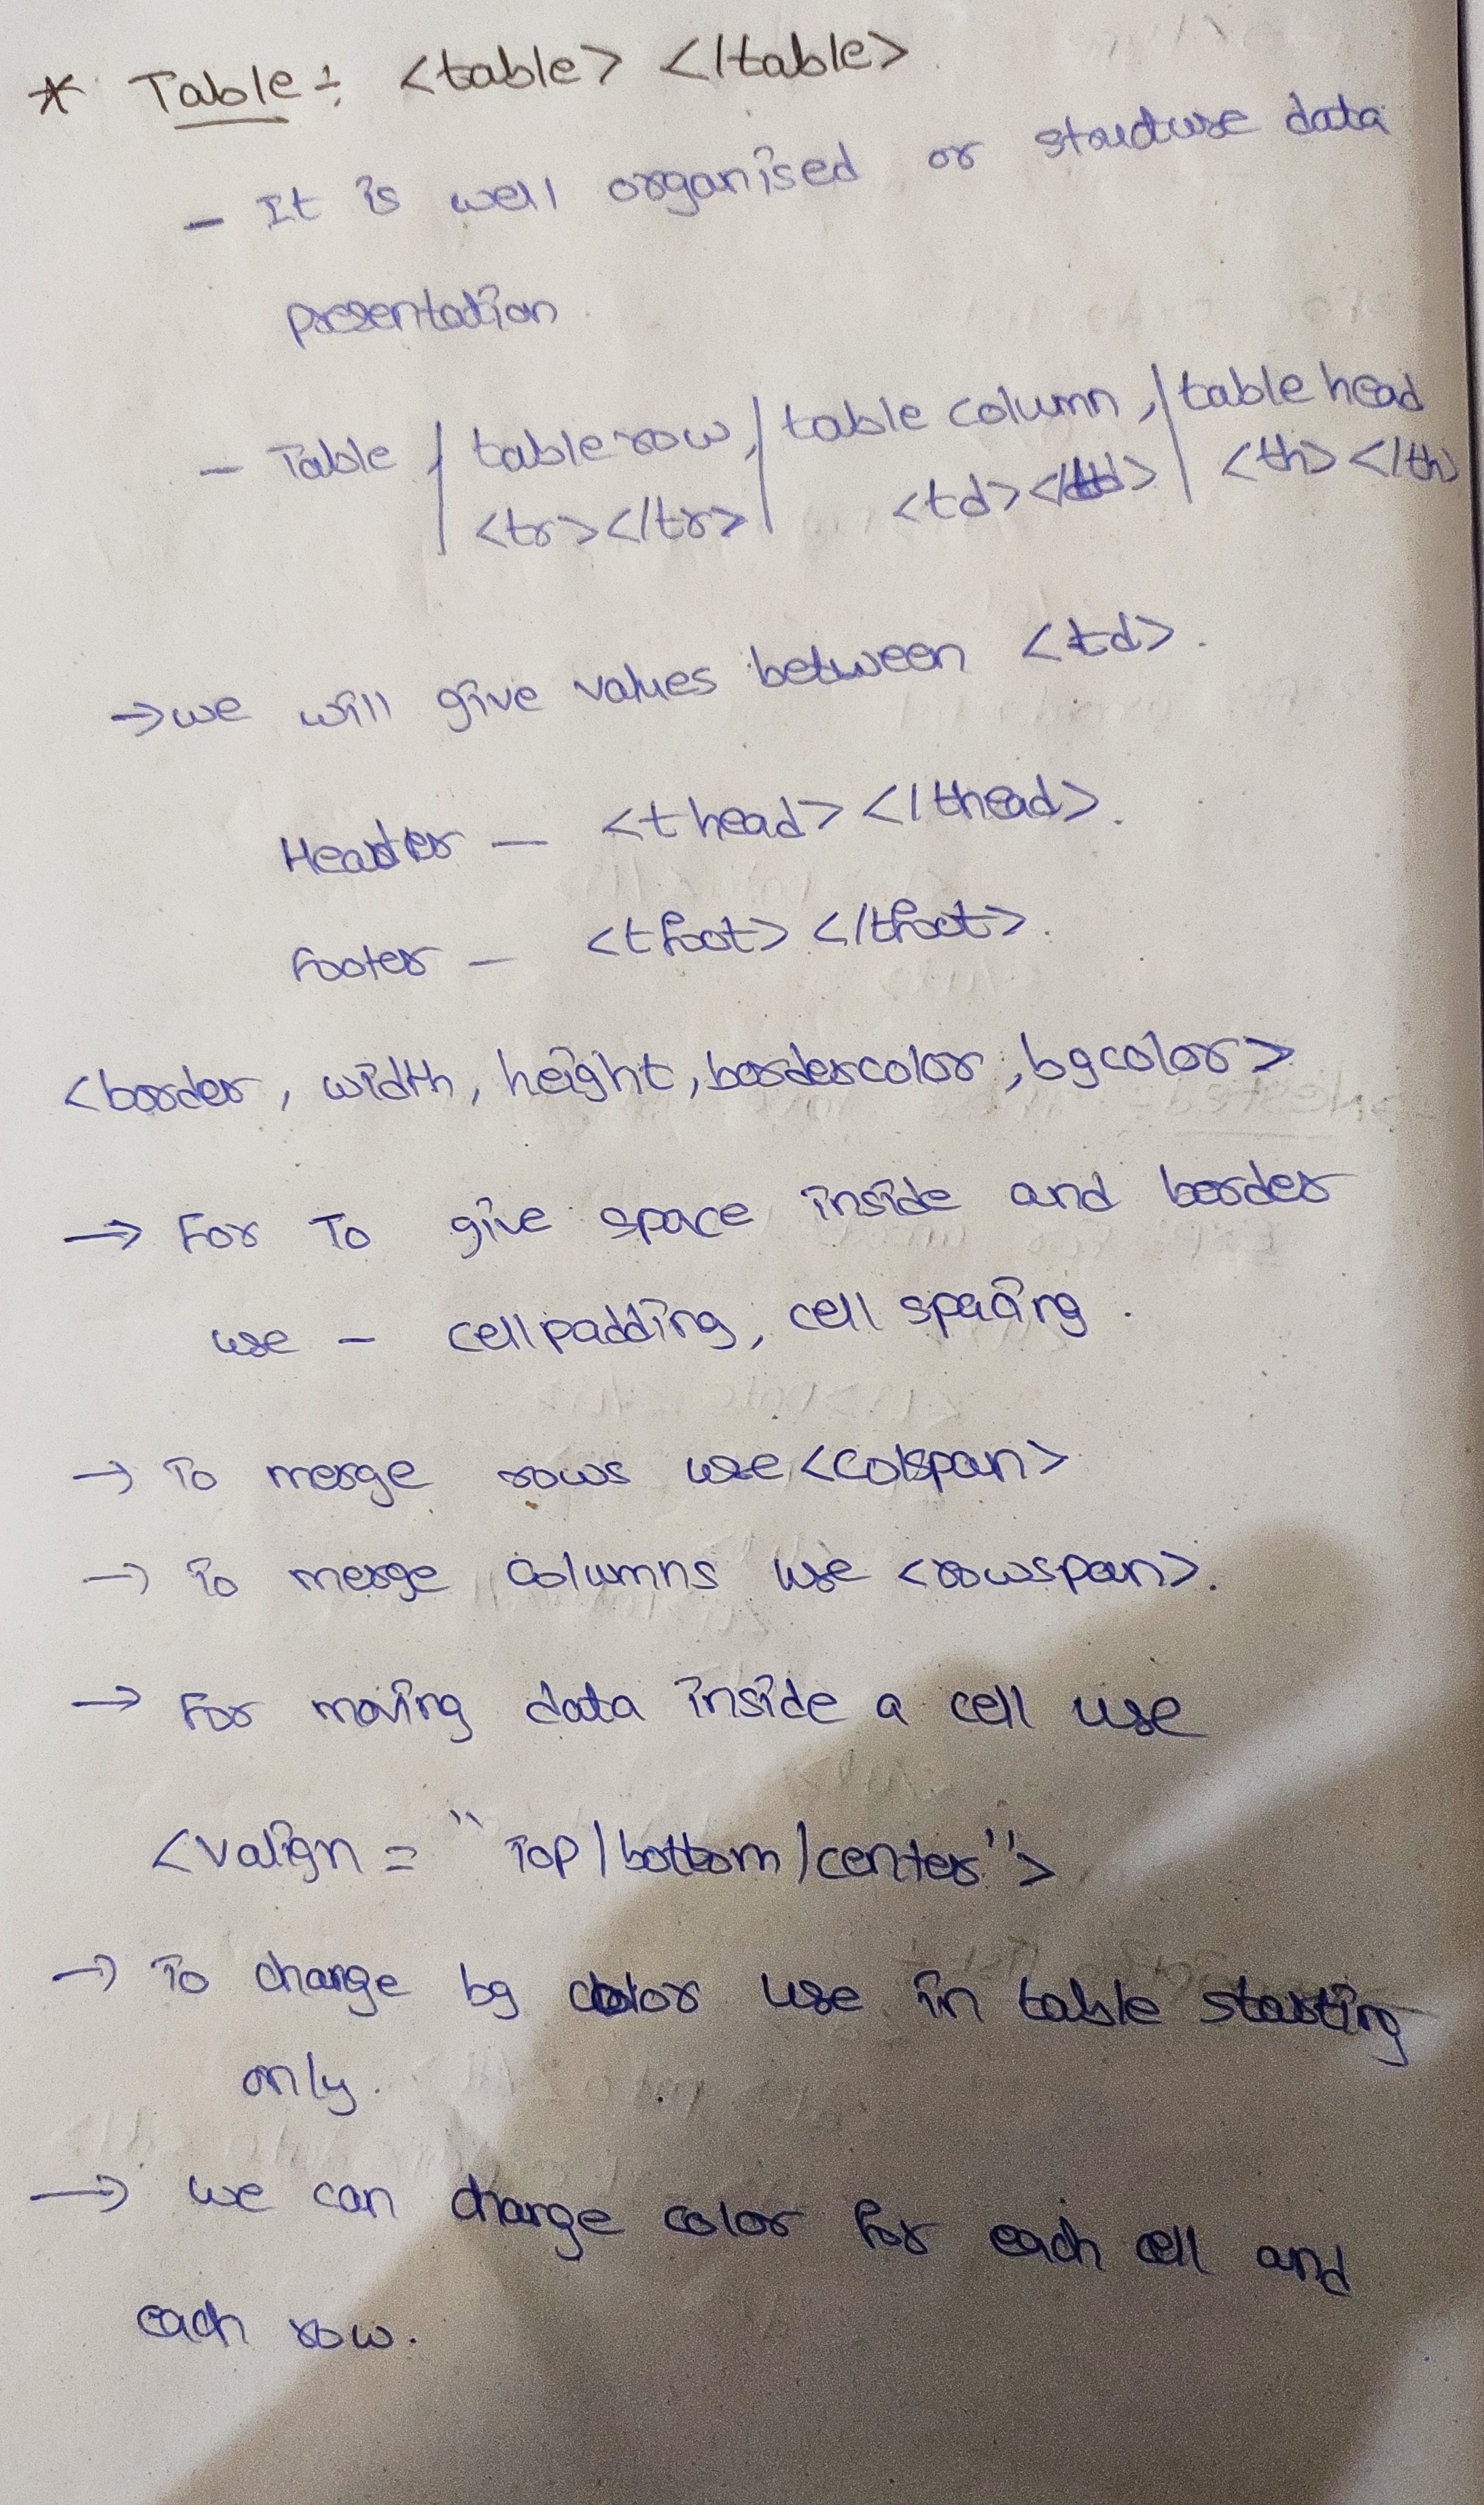 * Table :- <table> </table>
- It is well organised or structure data
presentation
- Table / table row, / table column, / table head
<tr></tr> <td></td> <th></th>
→ we will give values between <td>.
Header - <thead> </thead>.
Footer - <tfoot> </tfoot>.
<border, width, height, bordercolor, bgcolor>
→ For To give space inside and border
use - cellpadding, cell spacing.
→ To merge rows use <colspan>
→ To merge columns use <rowspan>.
→ For moving data inside a cell use
<valign = "Top/bottom/center">
→ To change bg color use in table starting
only.
→ we can change color for each cell and
each row.